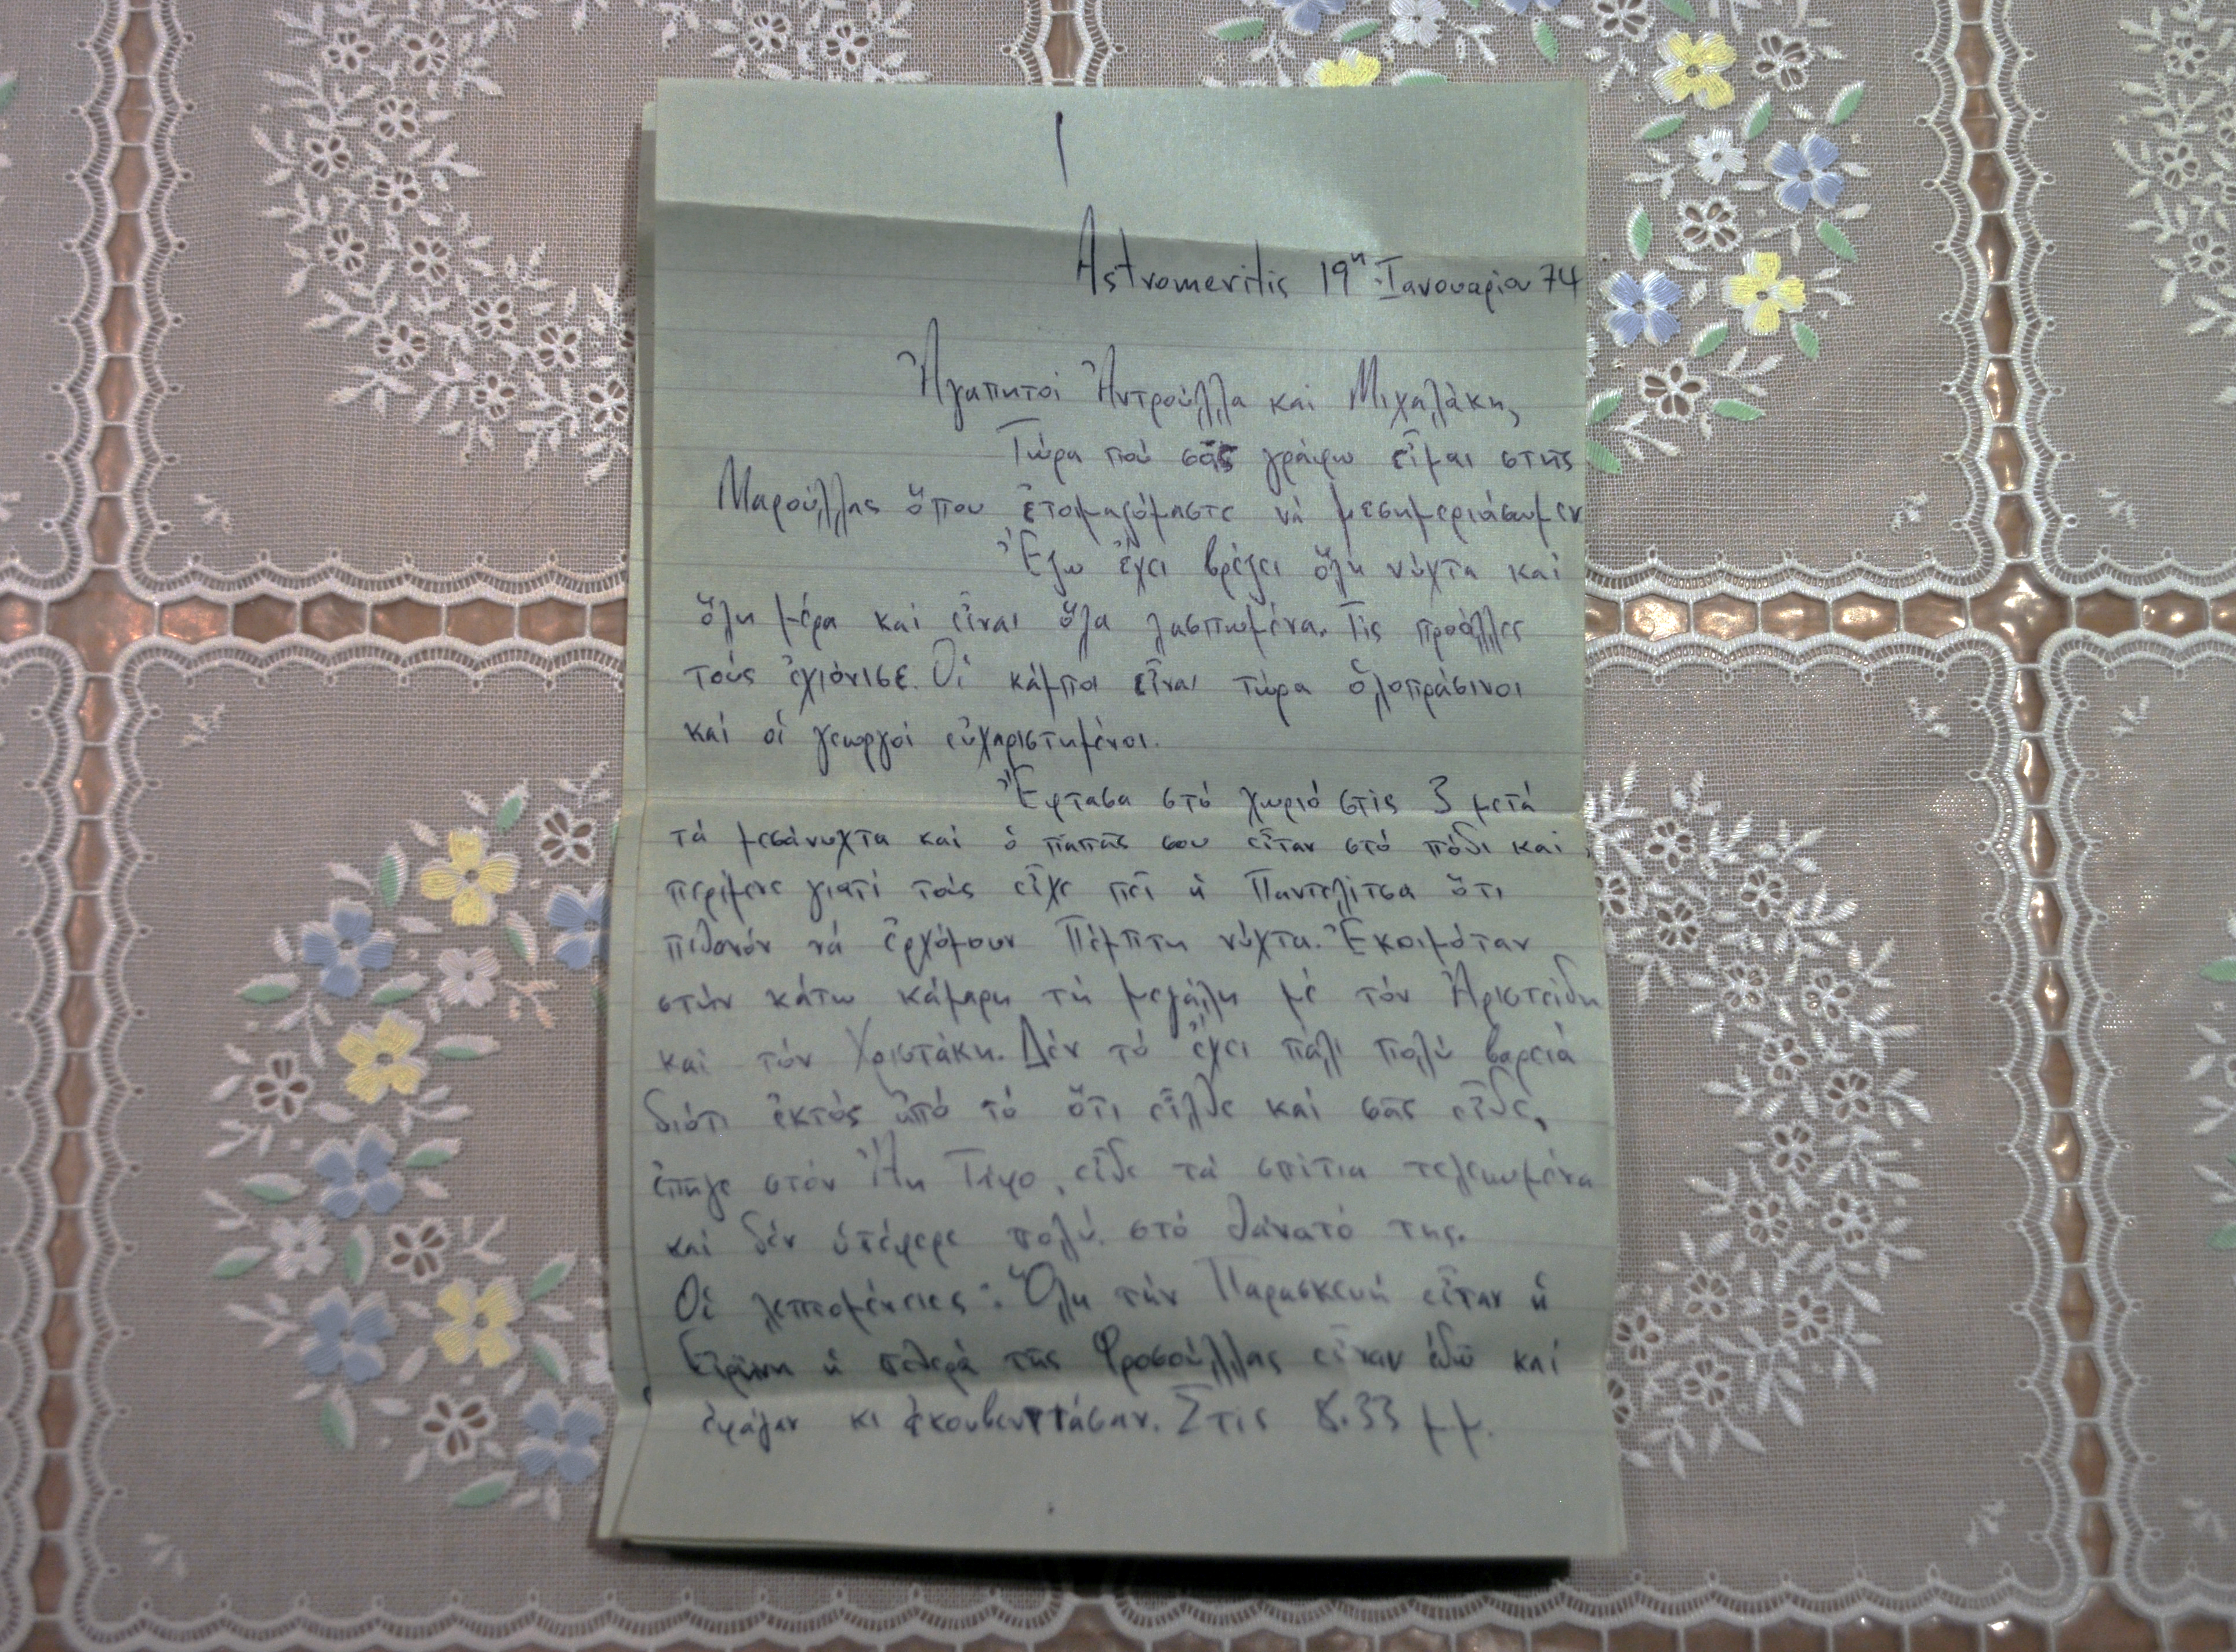 1
Astromeritis 19η Ἰανουαρίου 74
Ἀγαπητοί Ἀντρούλλα καί Μιχαλάκη,
Τώρα πού σᾶς γράφω εἶμαι στῆς
Μαρούλλας ὅπου ἑτοιμαζόμαστε νά μεσημεριάσωμεν
Ἔξω ἔχει βρέξει ὅλη νύχτα καί
ὅλη μέρα καί εἶναι ὅλα λασπωμένα. Τίς προάλλες
τούς ἐχιόνισε. Οἱ κάμποι εἶναι τώρα ὁλοπράσινοι
καί οἱ γεωργοί εὐχαριστημένοι.
Ἔφτασα στό χωριό στίς 3 μετά
τά μεσάνυχτα καί ὁ παπᾶς σου εἶταν στό πόδι καί
περίμενε γιατί τούς εἶχε πεῖ ἡ Παντελίτσα ὅτι
πιθανόν νά ἐρχόμουν Πέμπτη νύχτα. Ἐκοιμόταν
στήν κάτω κάμαρη τή μεγάλη μέ τόν Ἀριστείδη
καί τόν Χριστάκη. Δέν τό ἔχει πάλι πολύ βαρειά
διότι ἐκτός ἀπό τό ὅτι εἶλθε καί σᾶς εἶδε,
ἐπῆγε στόν Ἅη Τάφο, εἶδε τά σπίτια τελειωμένα
καί δέν ὑπέφερε πολύ στό θάνατό της.
Οἱ λεπτομέρειες: Ὅλη τήν Παρασκευή εἶταν ἡ
Εἰρήνη ἡ πεθερά τῆς Φροσούλλας εἶταν ἐδῶ καί
ἐφάγαν κι ἐκουβεντιάσαν. Στίς 8.33 μμ.